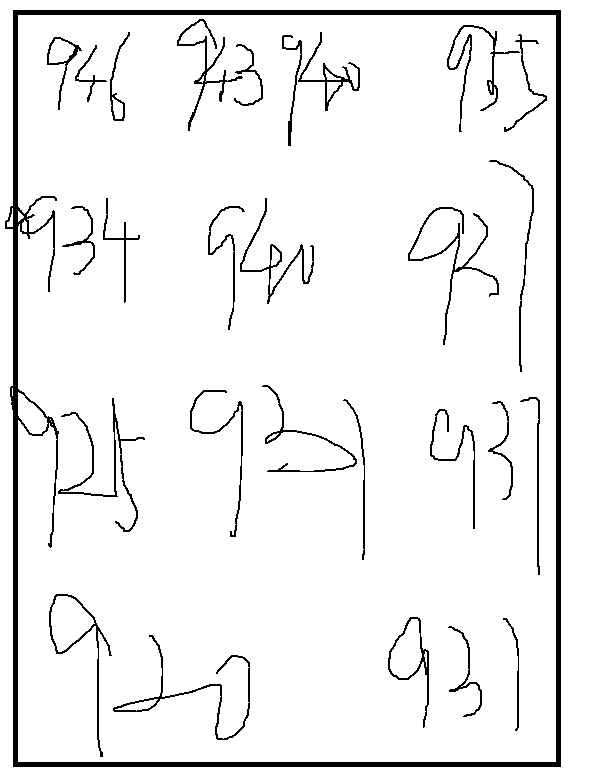 946 943 940 935
934 940 937
925 937 937
920 937